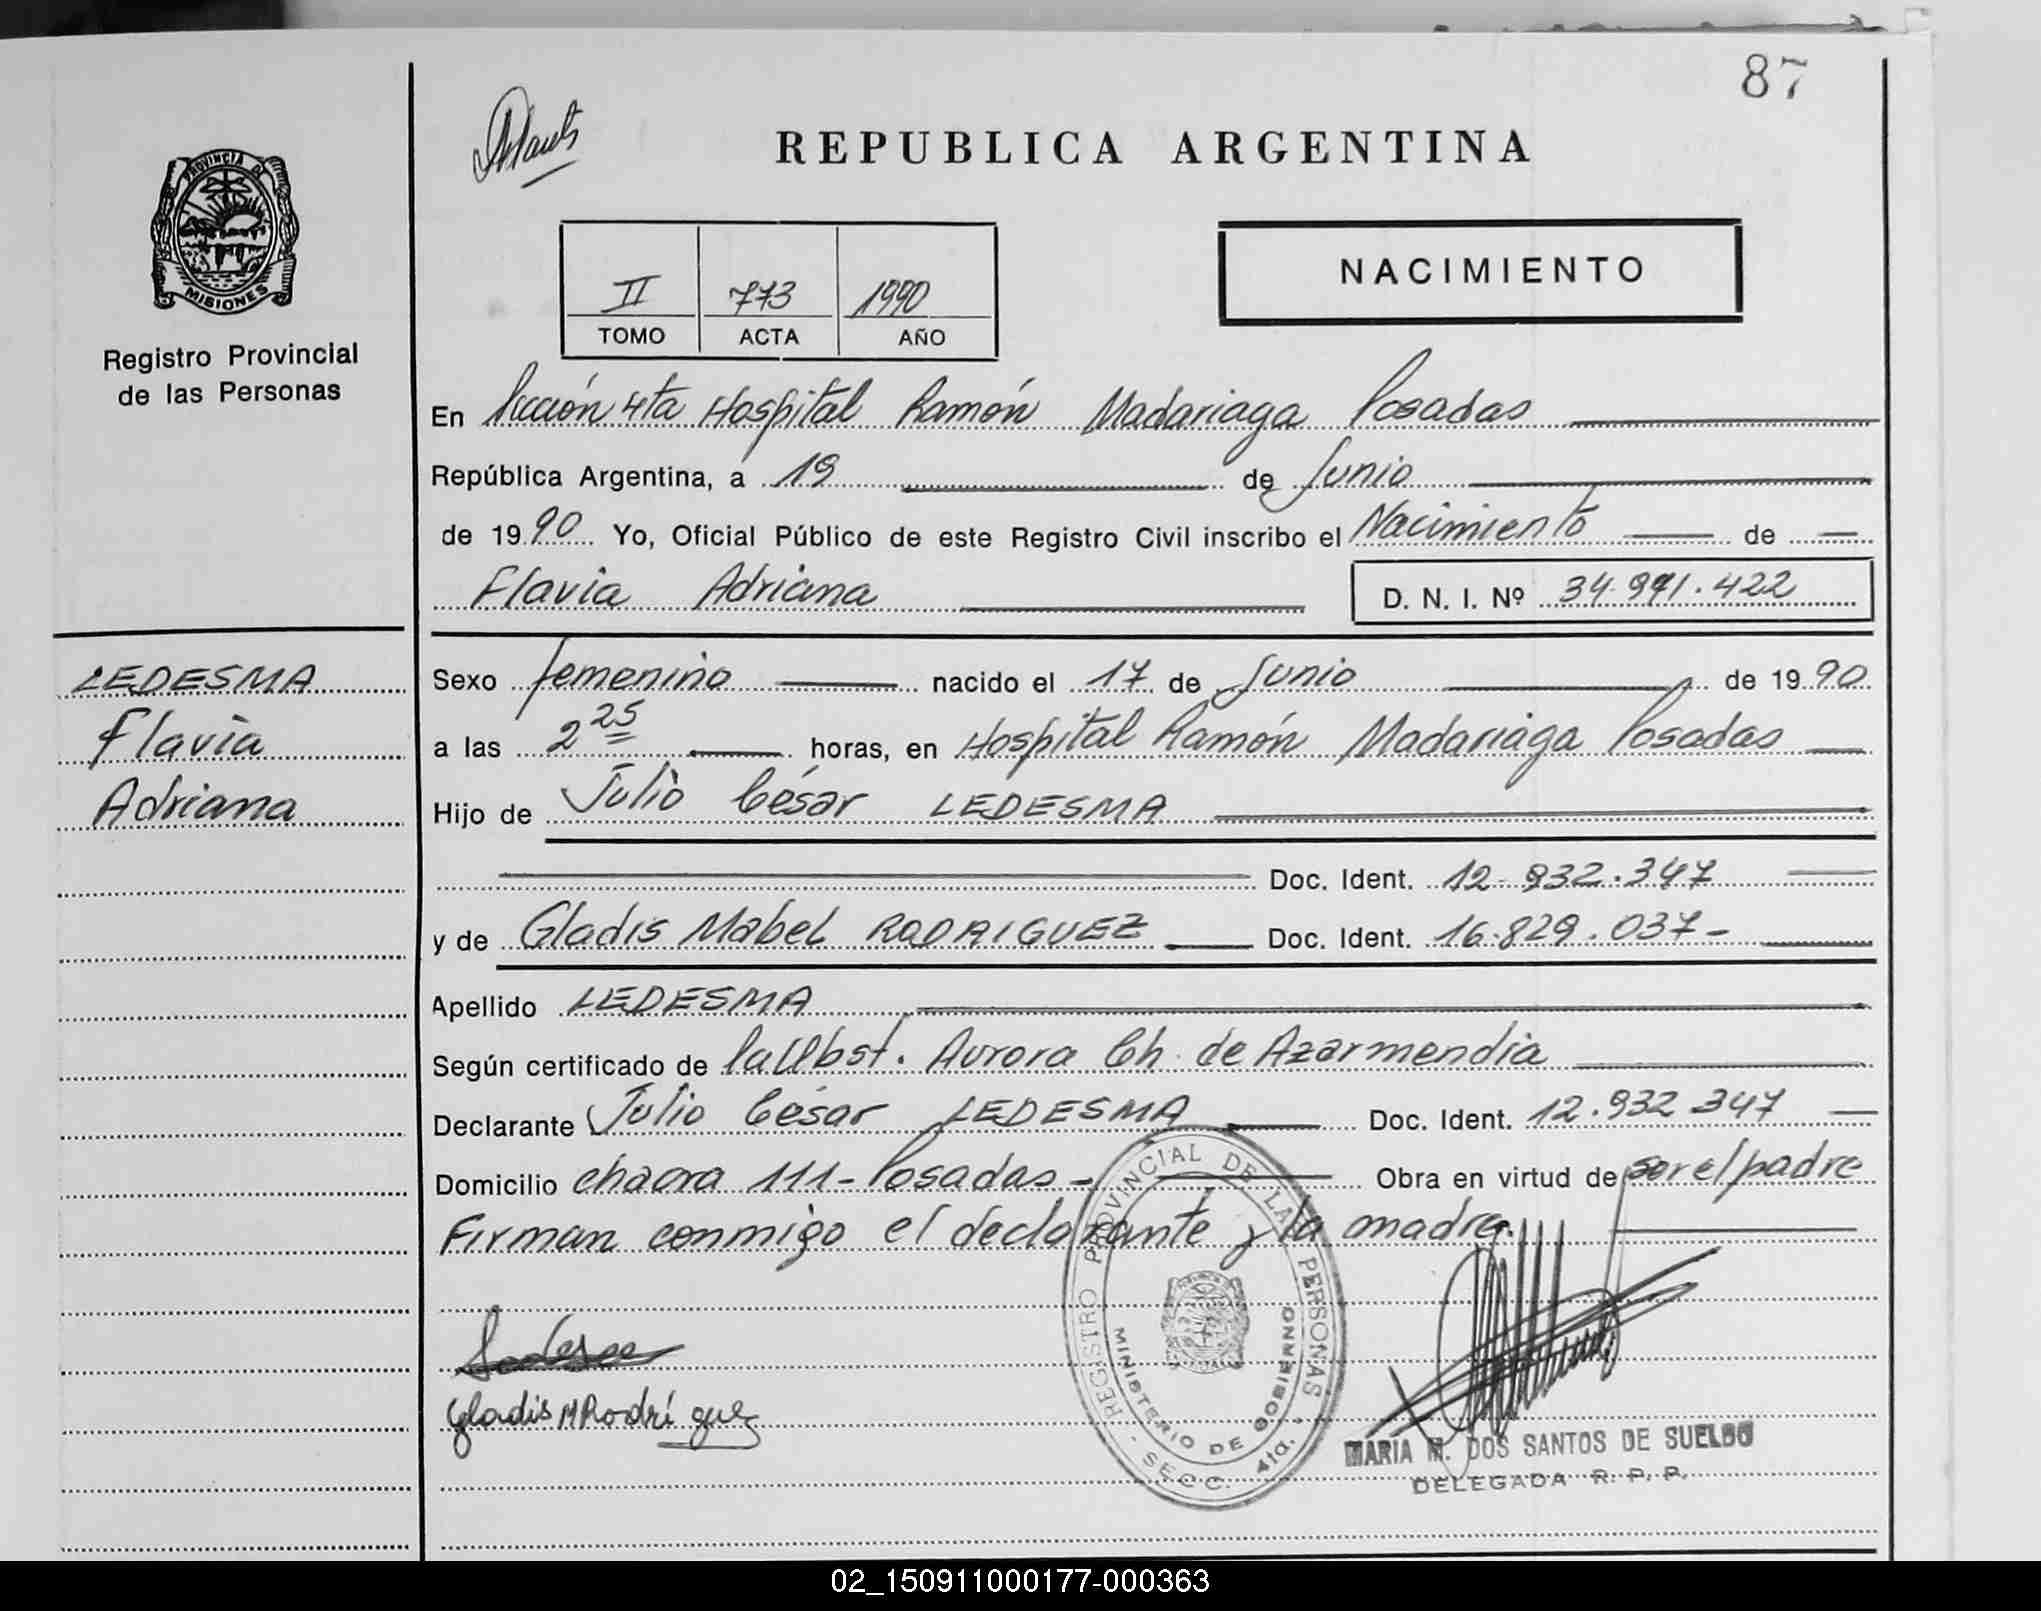 87
REPUBLICA ARGENTINA
PROVINCIA DE
MISIONES
Registro Provincial
de las Personas
II 773 1990
TOMO ACTA AÑO
NACIMIENTO
En Sección 4ta Hospital Ramón Madariaga Posadas
República Argentina, a 19 de Junio
de 1990 Yo, Oficial Público de este Registro Civil inscribo el Nacimiento de
Flavia Adriana D. N. I. Nº 34.991.422
LEDESMA
Flavia
Adriana
Sexo femenino nacido el 17 de Junio de 1990
a las 2 25 horas, en Hospital Ramón Madariaga Posadas
Hijo de Julio César LEDESMA
Doc. Ident. 12.932.347
y de Gladis Mabel RODRIGUEZ Doc. Ident. 16.829.037-
Apellido LEDESMA
Según certificado de la Obst. Aurora Ch. de Azarmendia
Declarante Julio César LEDESMA Doc. Ident. 12.932 347
Domicilio chacra 111-Posadas- Obra en virtud de ser el padre
Firman conmigo el declarante y la madre.
Gladis M Rodríguez
REGISTRO PROVINCIAL DE LAS PERSONAS
MINISTERIO DE GOBIERNO
- SECC. 4ta. -
MARIA M. DOS SANTOS DE SUELDO
DELEGADA R. P. P.
02_150911000177-000363